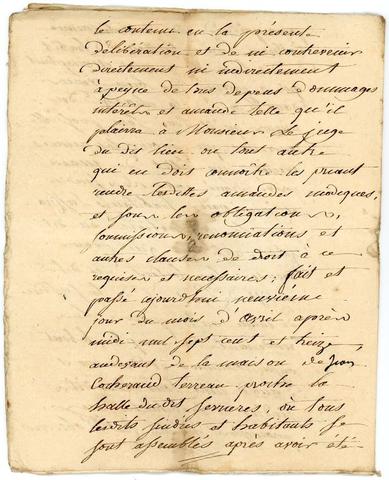 le contenu en la présente
délibération et de ni contrevenir
directement ni indirectement
à peyne de tous depens dommages
intérêts et amande telle qu'il
plairra à Monsieur Le juge
du dit lieu ou tous autre
qui en doit connoitre les priant
rendre lesdittes amandes modiques,
et sous les obligations,
soumissions, renonciations et
autres clauses de droit à ce
requises et necessaires; fait et
passé aujourdhui neuvième
jour du mois d'avril après
midi mil sept cent et treize,
audevant de la maison de Jean
terreau proche la
halle du dit serrieres, où tous
lesdits sindics et habitants se
sont assemblés après avoir été